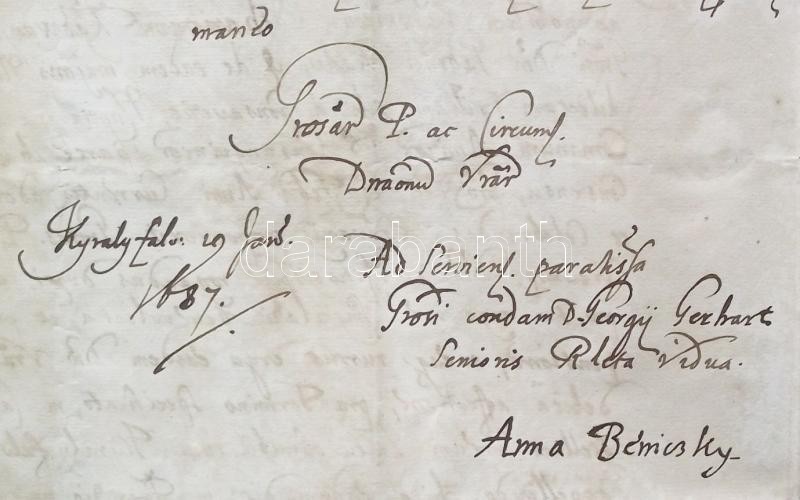 maneo
Grosár P. ac Circums.
Dnaōnū Vrār
Kyralyfalv. 19 Jan̄.
1687.
Ad Serviend. paratissa
Grosi condam D. Georgÿ Gerhart
Senioris Rleta Vidua.
Anna Beniczky
darabanth